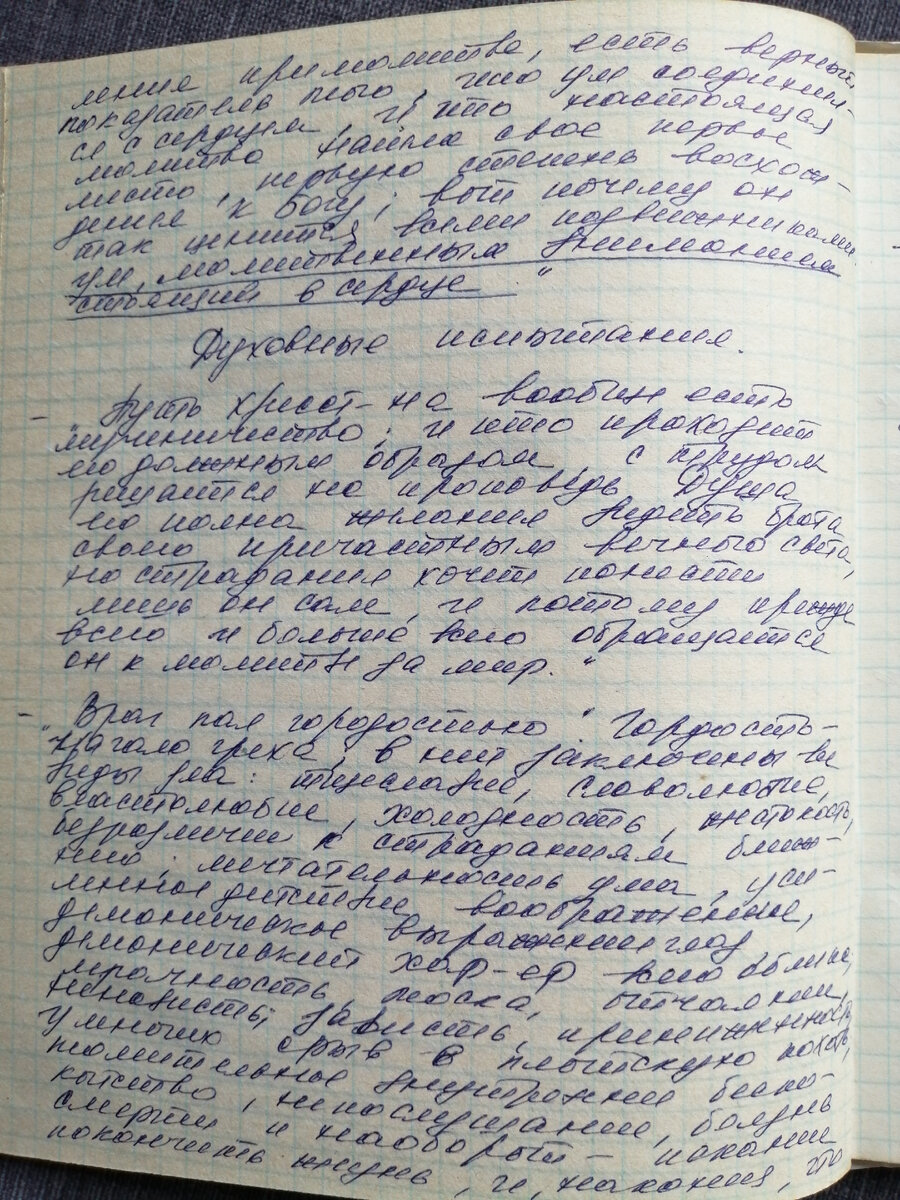 ление при молитве, есть верный
показатель того, что ум соединил-
ся с сердцем, и что настоящая
молитва нашла свое первое
место, первую степень восхож-
дения к Богу; вот почему он
так ценится всеми подвижниками.
ум, молитвенным вниманием
стоящий в сердце."
Духовные испытания.
– Путь христ-на вообще есть
"мученичество; и кто проходит
его должным образом с трудом
решается на проповедь. Душа
его полна желания видеть брата
своего причастным вечного света,
но страдания хочет понести
лишь он сам, и потому прежде
всего и больше всего обращается
он к молитве за мир."
– "Враг пал гордостью" Гордость-
начало греха, в ней заключены все
виды зла: тщеславие, славолюбие,
властолюбие, холодность, жестокость,
безразличие к страданиям ближ-
него; мечтательность ума, уси-
ленное действие воображения,
демоническое выражение глаз
демонический хар-ер всего облика;
мрачность, тоска, отчаяние,
ненависть; зависть, приниженность,
у многих срыв в плотскую похоть,
томительное внутреннее беспо-
койство, непослушание, боязнь
смерти и наоборот – искание
покончить жизнь, и, наконец, что